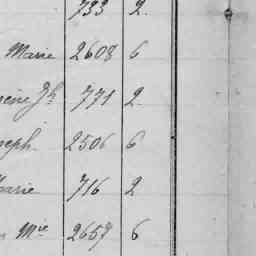 733 2.
Marie 2608 6
771 2
seph 2506 6
arie 716 2
Mie 2657 6